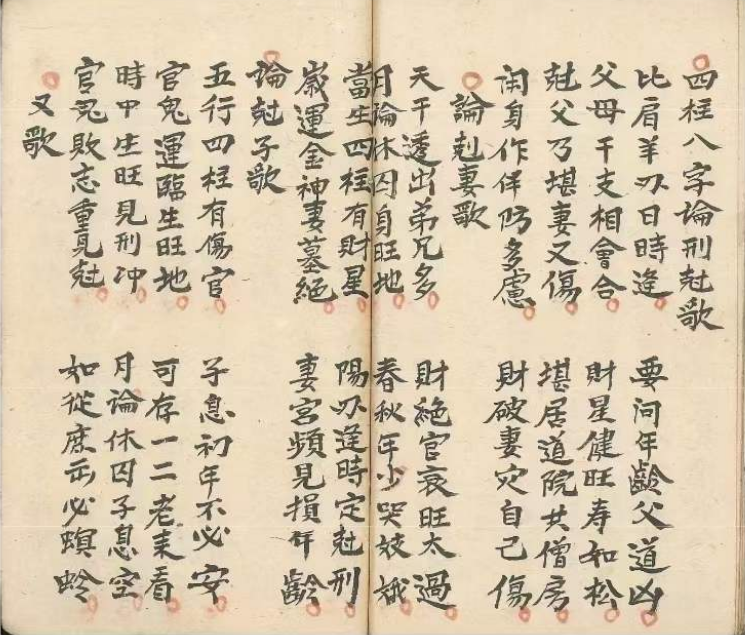 四柱八字論刑尅歌
比肩羊刃日時逢 要问年齡父道凶
父母干支相會合 財星健旺寿如松
尅父乃堪妻又傷 堪居道院共僧房
闲身作伴防多慮 財破妻灾自己傷
論尅妻歌
天干透出弟兄多 財絕官衰旺太過
月論休囚身旺地 春秋年少哭姣娥
當生四柱有財星 陽刃逢時定尅刑
歲運金神妻墓絕 妻宮頻見損年齡
論尅子歌
五行四柱有傷官 子息初年不必安
官鬼運臨生旺地 可存一二老来看
時中生旺見刑冲 月論休囚子息空
官鬼敗忘重見尅 如從庶出必螟蛉
又歌